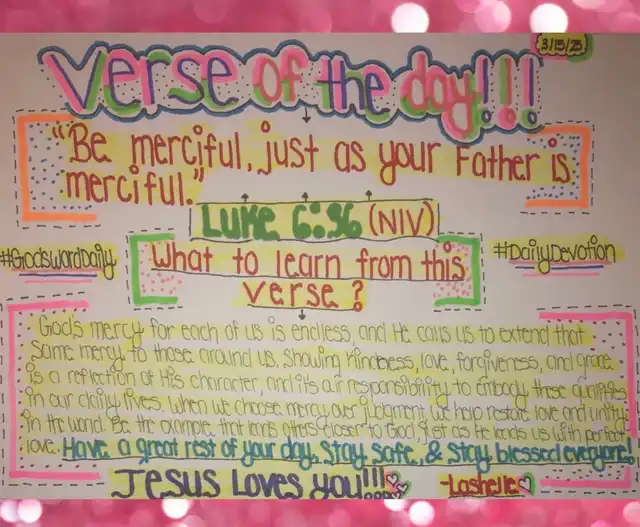 3/15/25
Verse of the day!!!
"Be merciful, just as your Father is
merciful."
Luke 6:36 (NIV)
#GodsWordDaily
#DailyDevotion
What to learn from this
verse?
God's mercy for each of us is endless, and He calls us to extend that
same mercy to those around us. Showing kindness, love, forgiveness, and grace
is a reflection of His character, and it's our responsibility to embody these qualities
in our daily lives. When we choose mercy over judgment, we help restore love and unity
in the world. Be the example that leads others closer to God, just as He leads us with perfect
love. Have a great rest of your day, stay safe, & stay blessed everyone!
Jesus Loves you!!!
-Lashelle